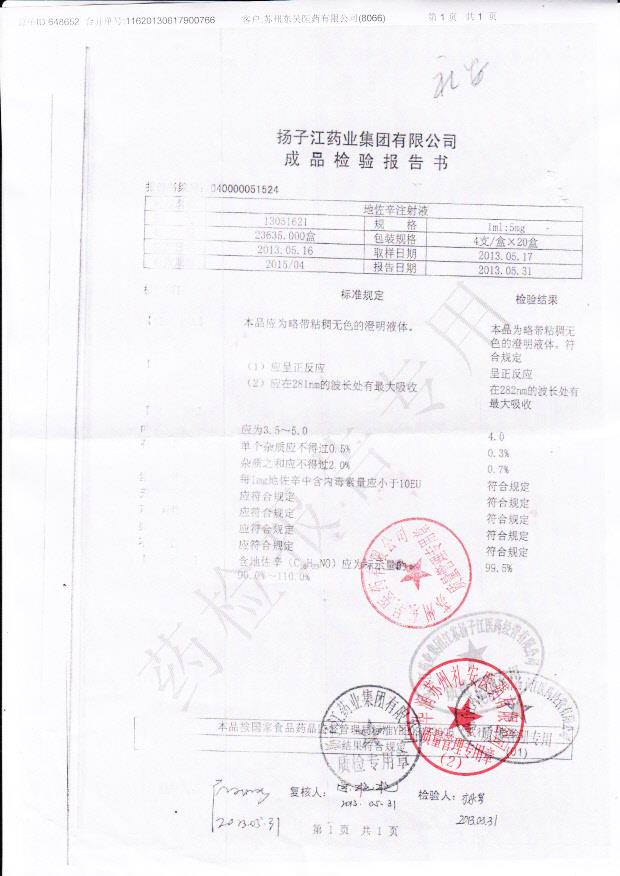 648652 合并单号:11620130617900766 客户:苏州东吴医药有限公司(8066) 第1页 共1页
礼安
扬子江药业集团有限公司
成品检验报告书
040000051524
地佐辛注射液
13051621 规格 1ml:5mg
23635.000盒 包装规格 4支/盒×20盒
2013.05.16 取样日期 2013.05.17
2015/04 报告日期 2013.05.31
标准规定 检验结果
本品应为略带粘稠无色的澄明液体。 本品为略带粘稠无
色的澄明液体。符
合规定
(1)应呈正反应 呈正反应
(2)应在281nm的波长处有最大吸收 在282nm的波长处有
最大吸收
应为3.5~5.0 4.0
单个杂质应不得过0.5% 0.3%
杂质之和应不得过2.0% 0.7%
每1mg地佐辛中含内毒素量应小于10EU 符合规定
应符合规定 符合规定
应符合规定 符合规定
应符合规定 符合规定
应符合规定 符合规定
含地佐辛 应为标示量的 99.5%
90.0%~110.0%
药检报告专用
本品按国家食品药品
结果符合规定
质检专用章
质量管理专用章
(2)
复核人: 检验人:
2013.05.31 2013.05.31 2013.05.31
第1页 共1页